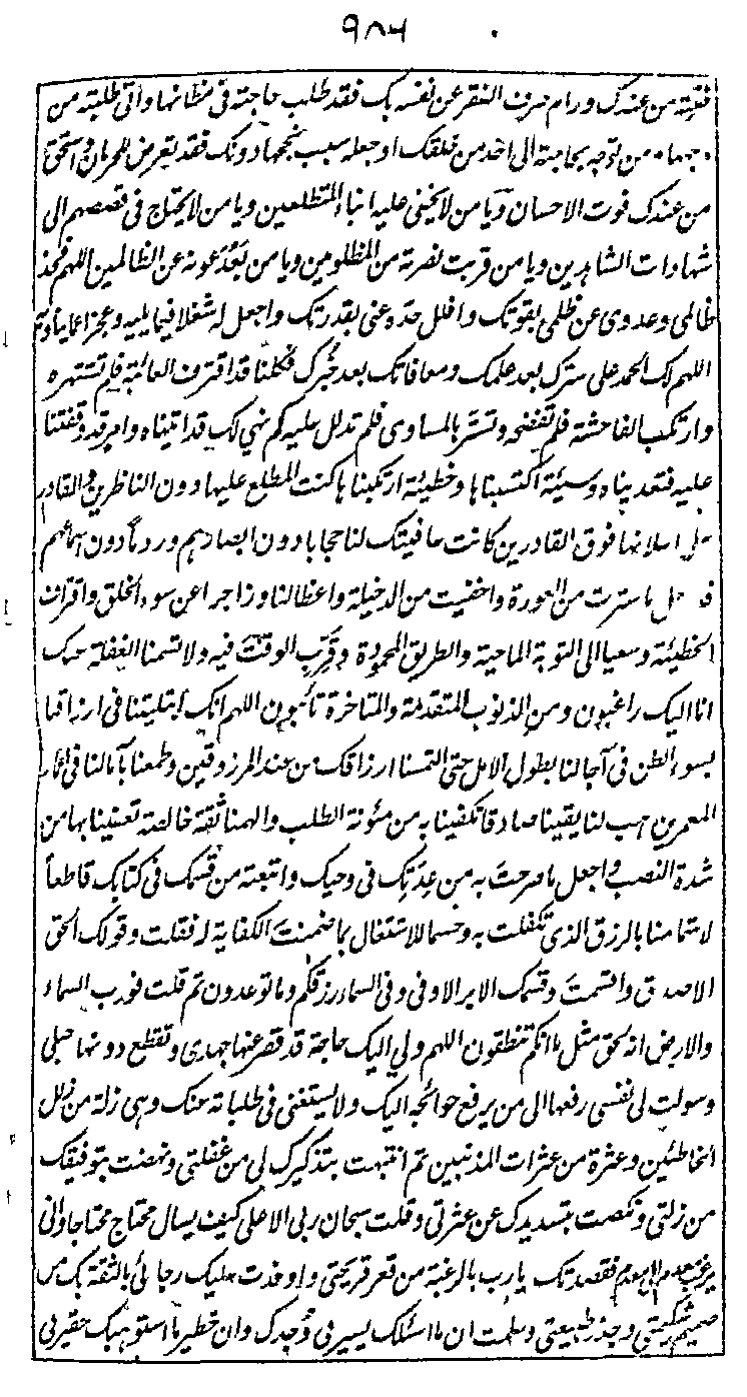 ٩٨٦
خلته من عندك ورام صرف الفقر عن نفسه بك فقد طلب حاجته فى مظانها واتى طلبته من
وجهها ومن توجه بحاجته الى احد من خلقك او جعله سبب نجحها دونك فقد تعرض للحرمان واستحق
من عندك فوت الاحسان ويا من لا يخفى عليه انباء المتظلمين ويا من لا يحتاج فى قصصهم الى
شهادات الشاهدين ويا من قربت نصرته من المظلومين ويا من بعد عونه عن الظالمين اللهم فخذ
ظالمى وعدوى عن ظلمى بقوتك وافلل حده عنى بقدرتك واجعل له شغلا فيما يليه وعجزا عما
اللهم لك الحمد على سترك بعد علمك ومعافاتك بعد خبرك فكلنا قد اقترف العائبة فلم تشتهره
وارتكب الفاحشة فلم تفضحه وتستر بالمساوى فلم تدلل عليه كم نهى لك قد اتيناه وامر قد وقفتنا
عليه فتعديناه وسيئة اكتسبناها وخطيئة ارتكبناها كنت المطلع عليها دون الناظرين والقادر
على اعلانها فوق القادرين كانت عافيتك لنا حجابا دون ابصارهم وردما دون اسماعهم
فاجعل ما سترت من العورة واخفيت من الدخيلة واعظا لنا وزاجرا عن سوء الخلق واقتراف
الخطيئة وسعيا الى التوبة الماحية والطريق المحمودة وقرب الوقت فيه ولا تسمنا الغفلة عنك
انا اليك راغبون ومن الذنوب المتقدمة والمتاخرة تائبون اللهم انك ابتليتنا فى ارزاقنا
بسوء الظن فى آجالنا بطول الامل حتى التمسنا ارزاقك من عند المرزوقين وطمعنا بآمالنا فى اعمار
المعمرين هب لنا يقينا صادقا تكفينا به من مئونة الطلب والهمنا ثقة خالصة تعفينا بها من
شدة النصب واجعل ما صرحت به من عدتك فى وحيك واتبعته من قسمك فى كتابك قاطعاً
لاهتمامنا بالرزق الذى تكفلت به وحسما للاشتغال بما ضمنت الكفاية له فقلت وقولك الحق
الاصدق واقسمت وقسمك الابر الاوفى وفى السماء رزقكم وما توعدون ثم قلت فورب السماء
والارض انه لحق مثل ما انكم تنطقون اللهم ولى اليك حاجة قد قصر عنها جهدى وتقطع دونها حيلى
وسولت لى نفسى رفعها الى من يرفع حوائجه اليك ولا يستغنى فى طلباته عنك وهى زلة من زلل
الخاطئين وعثرة من عثرات المذنبين ثم انتبهت بتذكيرك لى من غفلتى ونهضت بتوفيقك
من زلتى ونكصت بتسديدك عن عثرتى وقلت سبحان ربى الاعلى كيف يسال محتاج محتاجا وانى
يرغب معدم الى معدم فقصدتك يا رب بالرغبة من قعر قريحتى واوفدت عليك رجائى بالثقة بك من
صميم وجذر طبيعتى وعلمت ان ما اسئلك يسير فى وجدك وان خطير ما استوهبك حقير فى